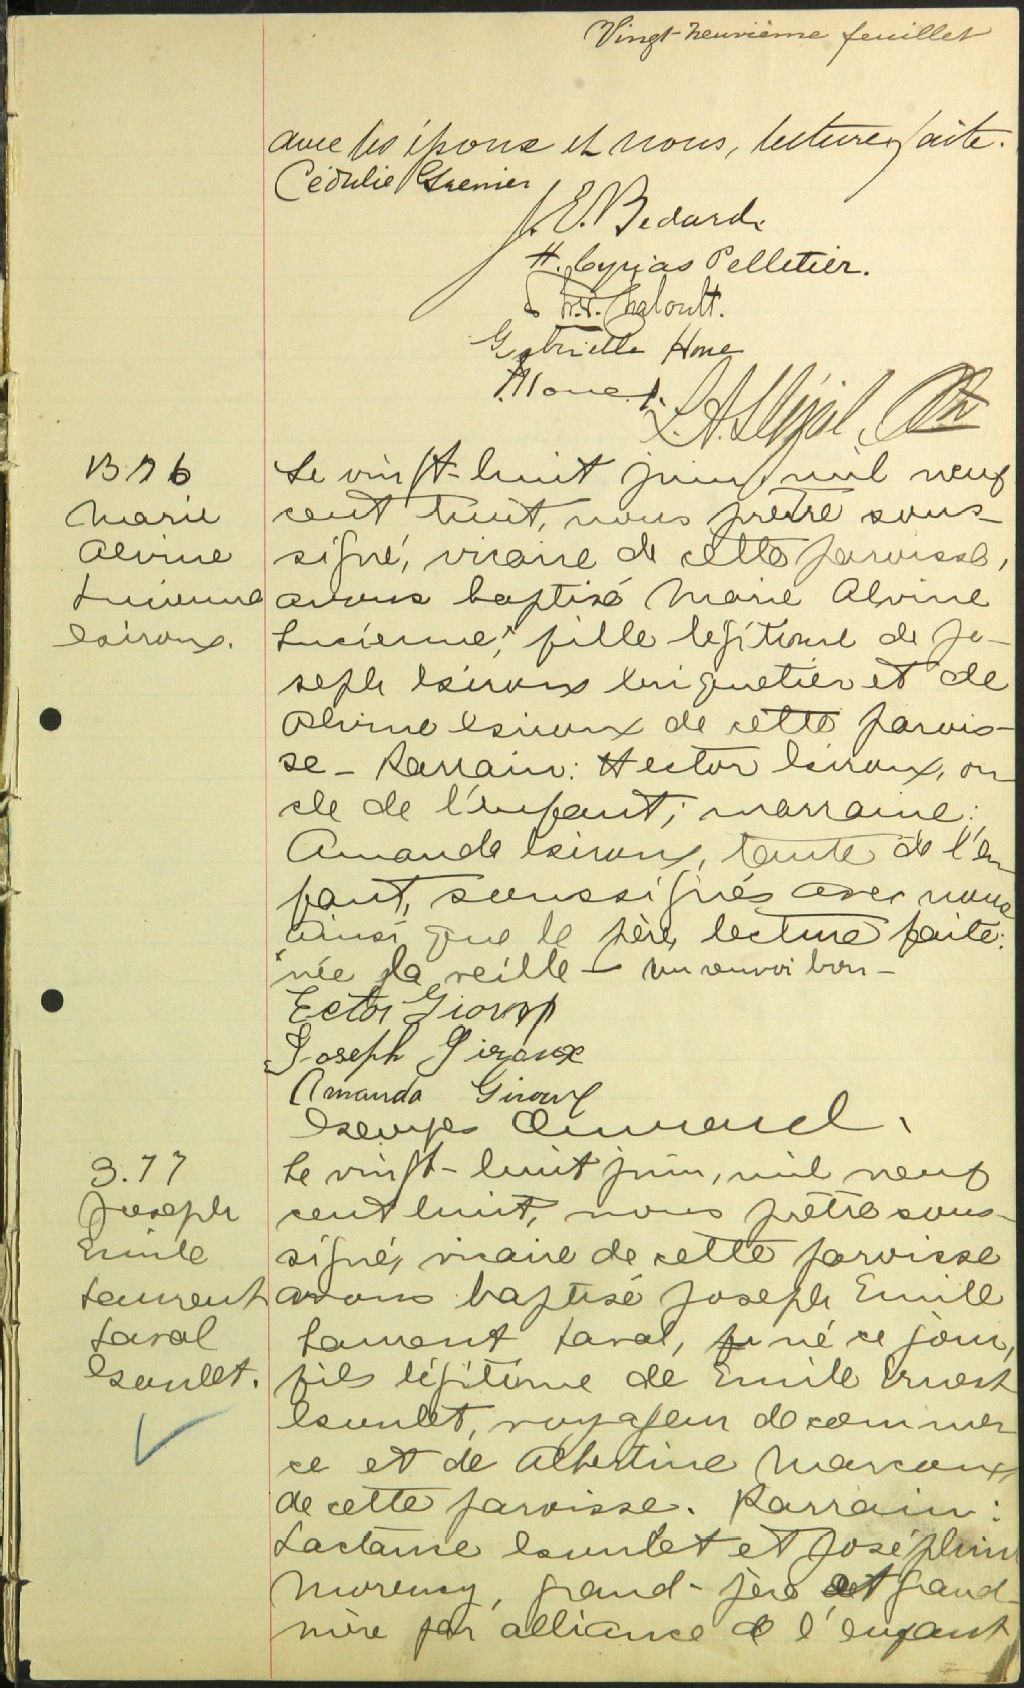 Vingt-neuvième feuillet
avec les époux et nous, lecture faite.
Cédulie Grenier
J. E. Bedard
H. Cyrias Pelletier.
Chaloult.
Gabrielle Houe
L. A.
B 76
Marie
Alvine
Lucienne
Giroux.
Le vingt-huit juin, mil neuf
cent huit, nous prêtre sous-
signé, vicaire de cette paroisse,
avons baptisé Marie Alvine
Lucienne, fille légitime de Jo-
seph Giroux briquetier et de
Alvine Giroux de cette parois-
se - Parrain: Hector Giroux, on
cle de l'enfant; marraine:
Amanda Giroux, tante de l'en
fant, soussignés avec nous
ainsi que le père, lecture faite.
née la veille - un renvoi bon -
Ector Giroux
Joseph Giroux
Amanda Giroux
Georges
B. 77
Joseph
Emile
Laurent
Laval
Goulet.
Le vingt-huit juin, mil neuf
cent huit, nous prêtre sous-
signé, vicaire de cette paroisse
avons baptisé Joseph Emile
Laurent Laval, né ce jour,
fils légitime de Emile Ernest
Goulet, voyageur de commer
ce et de Albertine Marcoux,
de cette paroisse. Parrain:
Lactance Goulet et Joséphine
Morency, grand-père et grand-
mère par alliance de l'enfant